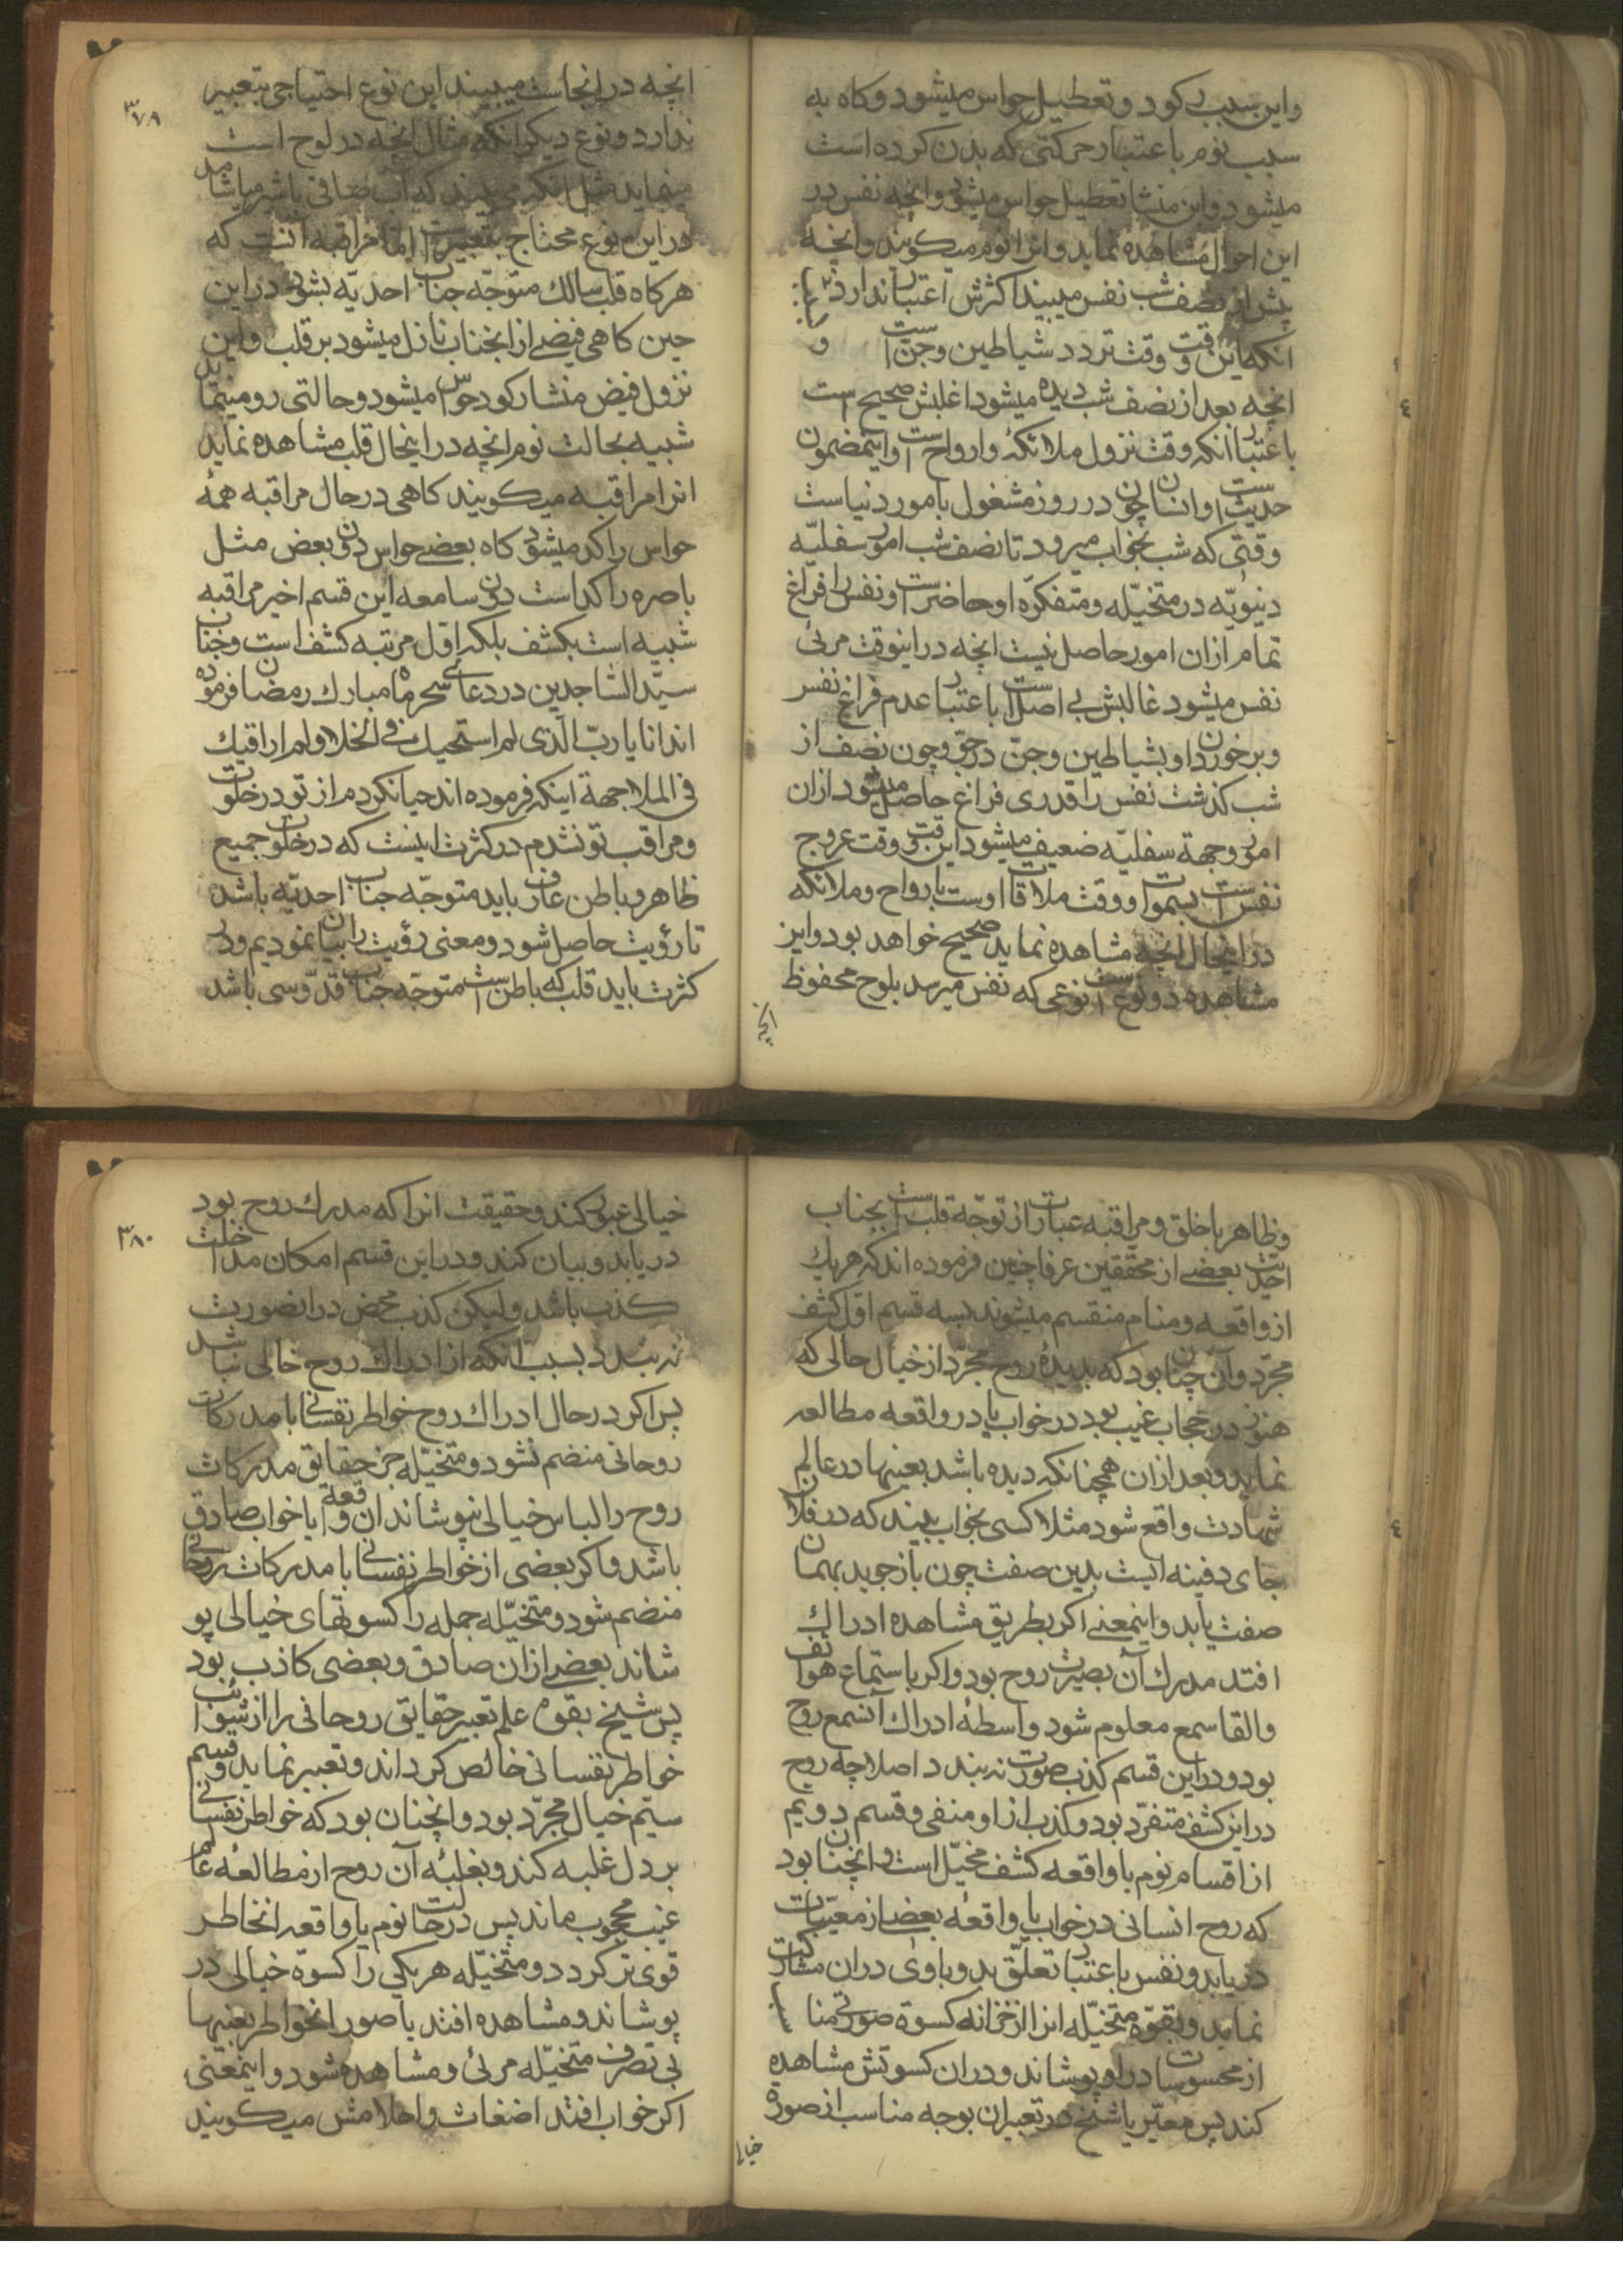 واین سبب رکود و تعطیل حواس میشود و کاه به
سبب نوم باعتبار حرکتی که بدن کرده است
میشود و این منشا تعطیل حواس میشود وانچه نفس در
این احوال مشاهده نماید وانرا نوم میکویند وانچه
پیش از نصف شب نفس میبیند اکثرش اعتبار ندارد
انکه این وقت وقت تردد شیاطین وجن است و
انچه بعد از نصف شب دیده میشود اغلبش صحیح است
باعتبار انکه وقت نزول ملائکه وارواح است واینمضمون
حدیث است وانسان چون در روز مشغول بامور دنیاست
وقتی که شب بخواب میرود تا نصف شب امور سفلیّه
دنیویّه در متخیّله و متفکرّه او حاضر است و نفس را فراغ
تمام ازان امور حاصل نیست انچه در اینوقت مرئی
نفس میشود غالبش بی اصل است باعتبار عدم فراغ نفس
وبرخوردن او بشیاطین وجنّ در جوّ وچون نصف از
شب کذشت نفس را قدری فراغ حاصل میشود ازان
امور وجهة سفلیّه ضعیف میشود این وقت وقت عروج
نفس است بسموات ووقت ملاقات اوست بارواح وملائکه
در اینحال انچه مشاهده نماید صحیح خواهد بود واین
مشاهده دو نوع است نوعی که نفس میرسد بلوح محفوظ
انچه
٣٧٩
انچه در انجاست میبیند این نوع احتیاجی بتعبیر
ندارد ونوع دیکر انکه مثال انچه در لوح است
مینماید مثل انکه می بیند که آب صافی یا شیر میاشامد
در این نوع محتاج بتعبیر است اما مراقبه آنست که
هرکاه قلب سالک متوجّه جناب احدیّه بشود در این
حین کاهی فیضی از انجناب نازل میشود بر قلب واین
نزول فیض منشا رکود حواس میشود وحالتی رو مینماید
شبیه بحالت نوم انچه در اینحال قلب مشاهده نماید
انرا مراقبه میکویند کاهی در حال مراقبه همهٔ
حواس راکد میشود کاه بعضی حواس دون بعض مثل
باصره راکد است دون سامعه این قسم اخیر مراقبه
شبیه است بکشف بلکه اوّل مرتبه کشف است وجناب
سیّد الساجدین در دعای سحر ماه مبارک رمضان فرموده
اند انا یا ربّ الّذی لم استحیک فی الخلا ولم اراقبک
فی الملا جهة اینکه فرموده اند حیا نکردم از تو در خلوت
ومراقب تو نشدم در کثرت اینست که در خلوت جمیع
ظاهر وباطن عارف باید متوجّه جناب احدیّه باشد
تا رؤیت حاصل شود ومعنی رؤیت را بیان نمودیم ودر
کثرت باید قلب که باطن است متوجّه جناب قدّوسی باشد
وظاهر با خلق ومراقبه عبارت از توجّه قلب است بجناب
احدیّت بعضی از محققین عرفا چنین فرموده اند که هریک
از واقعه ومنام منقسم میشوند بسه قسم اوّل کشف
مجرّد وآن چنان بود که بدیدهٔ روح مجرّد از خیال حالی که
هنوز در حجاب غیب بود در خواب یا در واقعه مطالعه
نماید وبعد ازان همچنانکه دیده باشد بعینها در عالم
شهادت واقع شود مثلا کسی بخواب بیند که در فلان
جای دفینه ایست بدین صفت چون باز جوید بهمان
صفت یابد واینمعنی اکر بطریق مشاهده ادراک
افتد مدرک آن بصیرت روح بود واکر باستماع هواتف
والقا سمع معلوم شود واسطهٔ ادراک آن سمع روح
بود ودر این قسم کذب صورت نبندد اصلا چه روح
در این کشف متفرّد بود وکذب از او منفی وقسم دویم
از اقسام نوم یا واقعه کشف مخیّل است وانچنان بود
که روح انسانی در خواب یا واقعه بعضی از مغیّبات
دریابد ونفس باعتبار تعلّق بدو با وی دران مشارکت
نماید وبقوّه متخیّله انرا از خزانه کسوة صورتی مناسب
از محسوسات در او پوشاند ودران کسوتش مشاهده
کند پس معبّر یا شیخ در تعبیر ان بوجه مناسب از صورة
خیالی
٣٨٠
خیالی عبور کند وحقیقت انرا که مدرک روح بود
دریابد وبیان کند ودر این قسم امکان مداخلت
کذب باشد ولیکن کذب محض در انصورت
نه بندد بسبب انکه از ادراک روح خالی نباشد
پس اکر در حال ادراک روح خواطر نفسانی با مدرکات
روحانی منضم نشود ومتخیّله جز حقایق مدرکات
روح را لباس خیالی نپوشاند ان واقعه یا خواب صادق
باشد واکر بعضی از خواطر نفسانی با مدرکات روحانی
منضم شود ومتخیّله جمله را کسوتهای خیالی پو
شاند بعضی ازان صادق وبعضی کاذب بود
پس شیخ بقوة علم تعبیر حقایق روحانی را از شوائب
خواطر نفسانی خالص کرداند وتعبیر نماید وقسم
سیّم خیال مجرّد بود وانچنان بود که خواطر نفسانی
بر دل غلبه کند وبغلبهٔ آن روح از مطالعهٔ عالم
غیب محجوب ماند پس در حالت نوم یا واقعه انخاطر
قوی تر کردد ومتخیّله هریکی را کسوة خیالی در
پوشاند ومشاهده افتد یا صور انخواطر بعینها
بی تصرف متخیّله مرئی ومشاهده شود واینمعنی
اکر خواب افتد اضغاث واحلامش میکویند